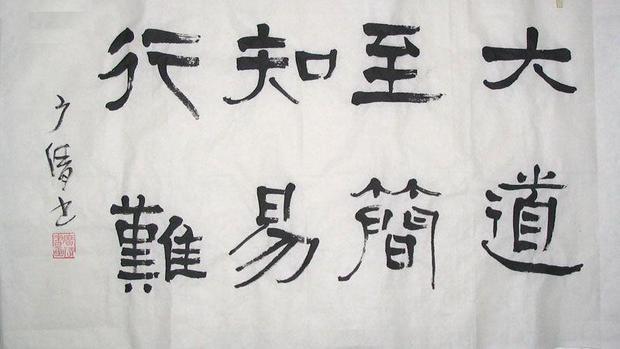 大道
至簡
知易
行難